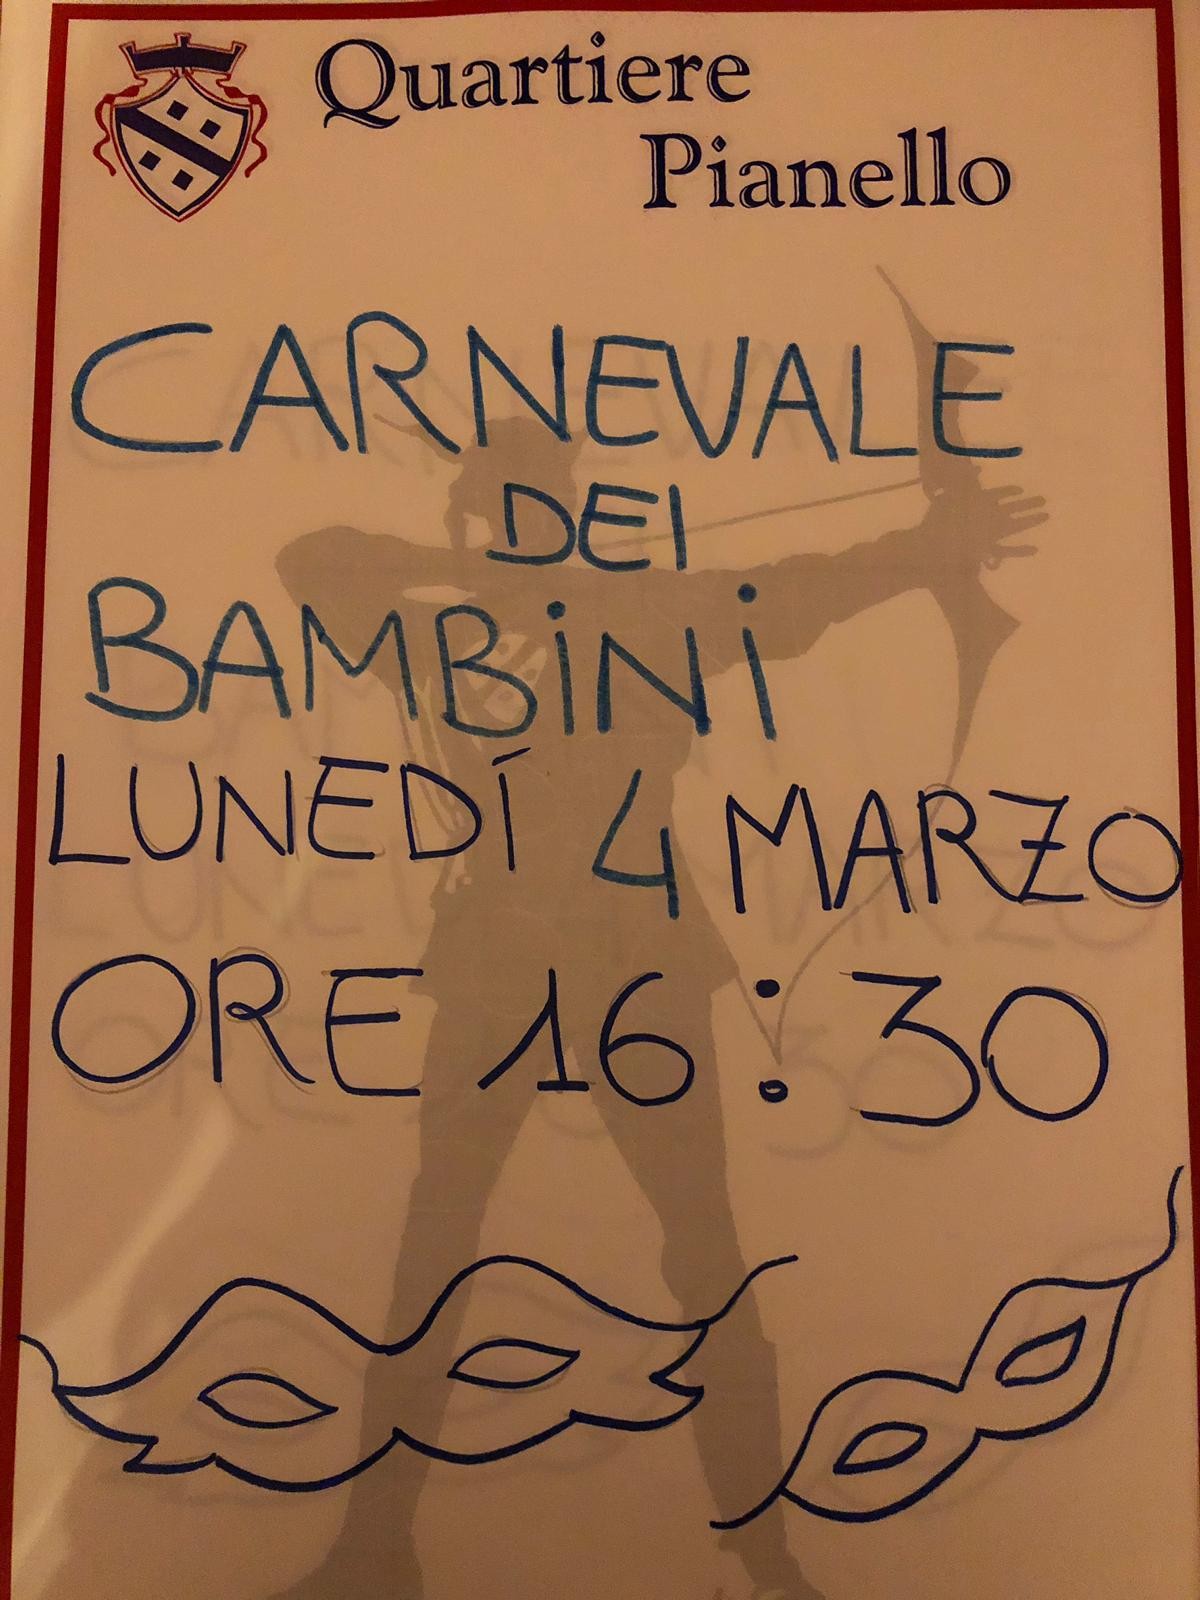 Quartiere
Pianello
CARNEVALE
DEI
BAMBiNi
LUNEDÍ 4 MARZO
ORE 16:30